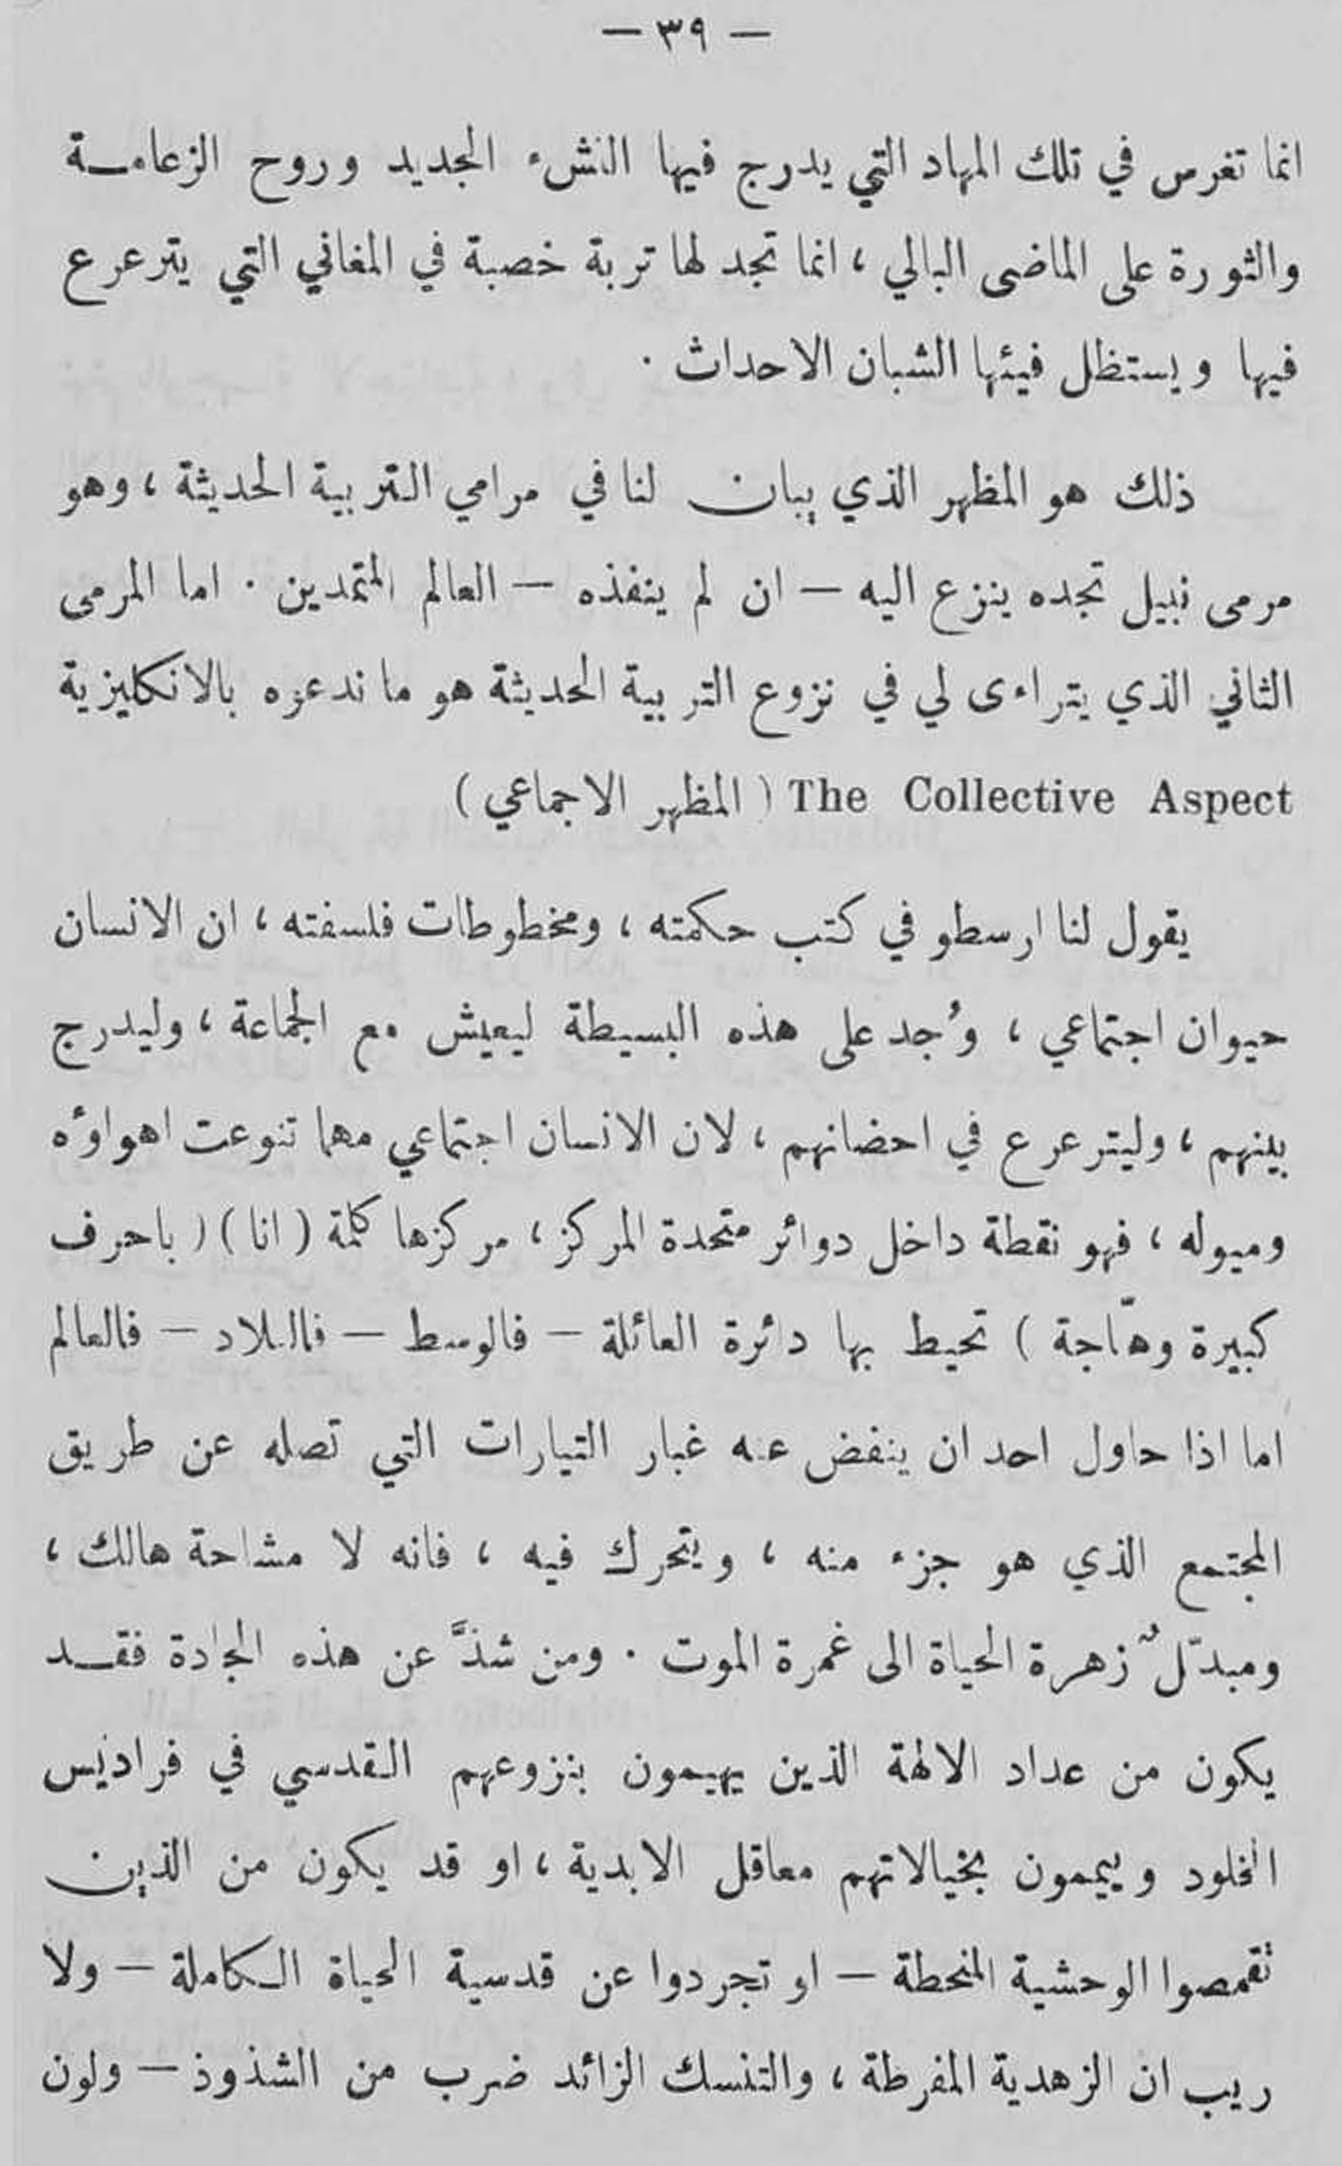 — ٣٩ —
انما تغرس في تلك المهاد التي يدرج فيها النشء الجديد وروح الزعامـة
والثورة على الماضى البالي ، انما تجد لها تربة خصبة في المغاني التي يترعرع
فيها ويستظل فيئها الشبان الاحداث .
ذلك هو المظهر الذي يبان لنا في مرامي التربية الحديثة ، وهو
مرمى نبيل تجده ينزع اليه — ان لم ينفذه — العالم المتمدين . اما المرمى
الثاني الذي يتراءى لي في نزوع التربية الحديثة هو ما ندعوه بالانكليزية
The Collective Aspect ( المظهر الاجماعي )
يقول لنا ارسطو في كتب حكمته ، ومخطوطات فلسفته ، ان الانسان
حيوان اجتماعي ، وُجد على هذه البسيطة ليعيش مع الجماعة ، وليدرج
بينهم ، وليترعرع في احضانهم ، لان الانسان اجتماعي مهما تنوعت اهواؤه
وميوله ، فهو نقطة داخل دوائر متحدة المركز ، مركزها كلمة ( انا ) ( باحرف
كبيرة وهّاجة ) تحيط بها دائرة العائلة — فالوسط — فالبلاد — فالعالم
اما اذا حاول احد ان ينفض عنه غبار التيارات التي تصله عن طريق
المجتمع الذي هو جزء منه ، ويتحرك فيه ، فانه لا مشاحة هالك ،
ومبدّلٌ زهرة الحياة الى غمرة الموت . ومن شذَّ عن هذه الجادة فقـد
يكون من عداد الالهة الذين يهيمون بنزوعهم القدسي في فراديس
الخلود وييممون بخيالاتهم معاقل الابدية ، او قد يكون من الذين
تقمصوا الوحشية المنحطة — او تجردوا عن قدسية الحياة الكاملة — ولا
ريب ان الزهدية المفرطة ، والتنسك الزائد ضرب من الشذوذ — ولون